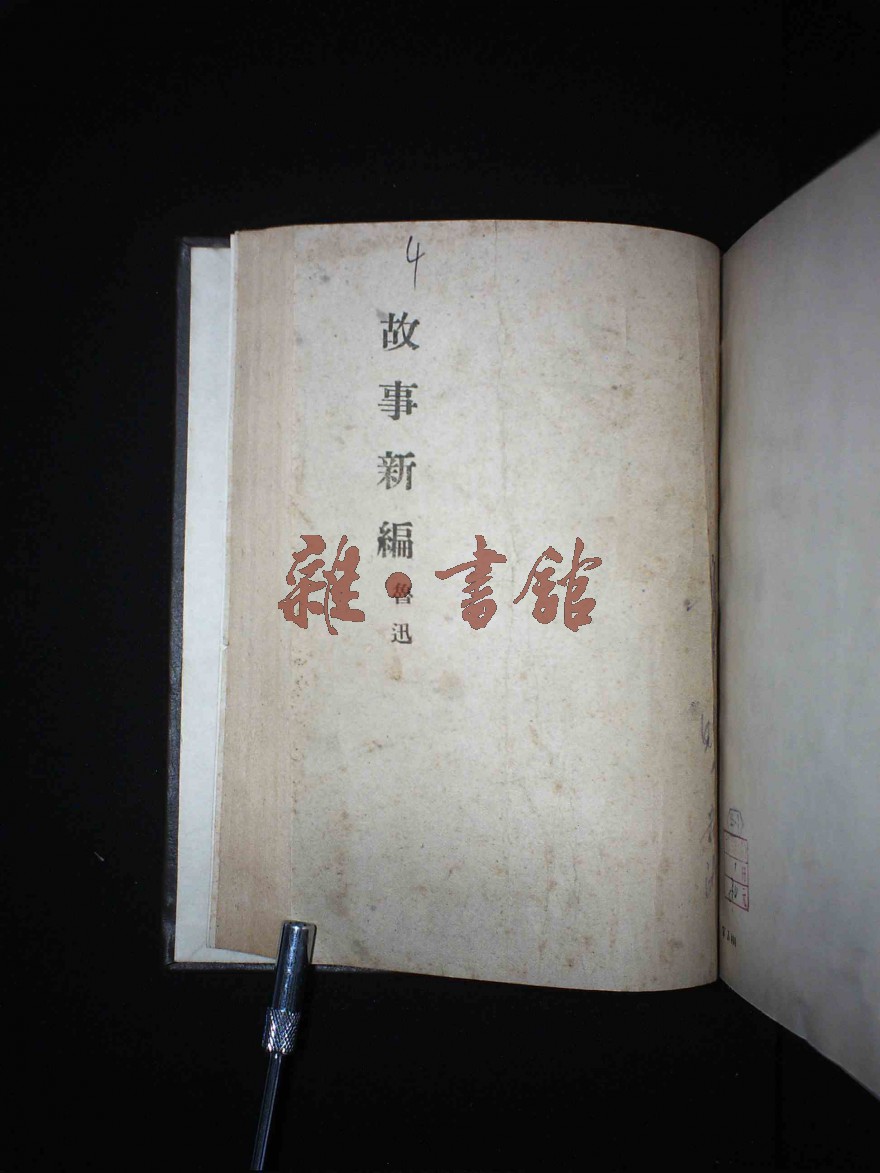 4
故事新編
魯迅
雜·書館